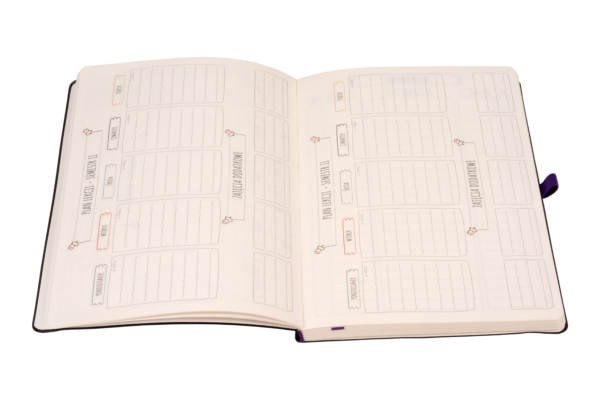 PLAN LEKCJI - SEMESTR II
PONIEDZIAŁEK
WTOREK
ŚRODA
CZWARTEK
PIĄTEK
ZAJĘCIA DODATKOWE
PLAN LEKCJI - SEMESTR II
PONIEDZIAŁEK
WTOREK
ŚRODA
CZWARTEK
PIĄTEK
ZAJĘCIA DODATKOWE